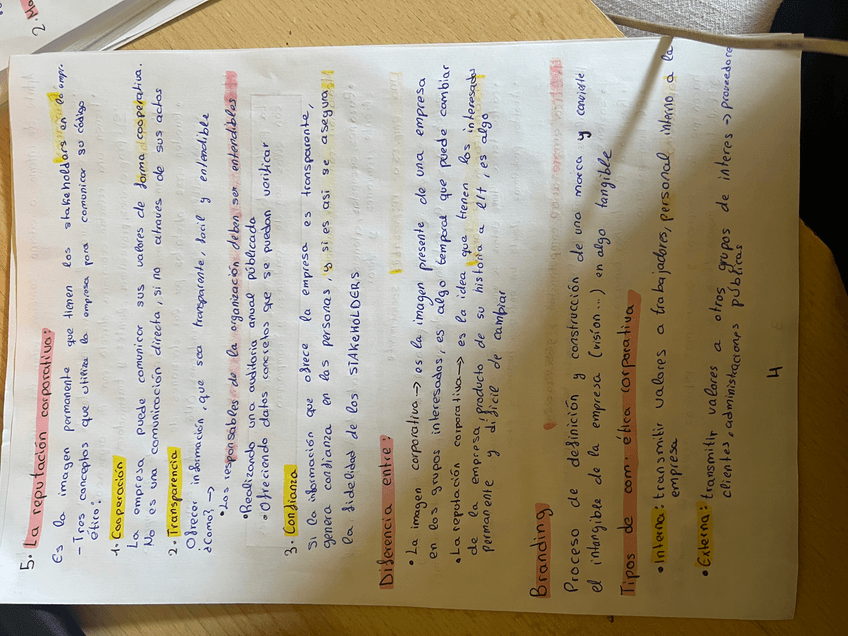 5. La reputación corporativa:
Es la imagen permanente que tienen los stakeholders en la empr.
- Tres conceptos que utiliza la empresa para comunicar su código
ético:
1. Cooperación
La empresa puede comunicar sus valores de forma cooperativa.
No es una comunicación directa, si no através de sus actos
2. Transparencia
Ofrecer información, que sea transparente, facil y entendible
¿como? →
• Los responsables de la organización deben ser entendibles
• Realizando una auditoria anual públicada
• Ofreciendo datos concretos que se puedan verificar
3. Confianza
Si la aformación que ofrece la empresa es transparente,
genera confianza en las personas, y si es asi se asegura
la fidelidad de los STAKEHOLDERS
Diferencia entre:
• La imagen corporativa → es la imagen presente de una empresa
en los grupos interesados, es algo temporal que puede cambiar
• La reputación corporativa → es la idea que tienen los interesados
de la empresa, producto de su historia a l/t, es algo
permanente y difícil de cambiar
Branding
Proceso de definición y construcción de una marca y convierte
el intangible de la empresa (visión...) en algo tangible
Tipos de com. ética corporativa
• Interna: transmitir valores a trabajadores, personal interno a la
empresa
• Externa: transmitir valores a otros grupos de interes → proveedore
clientes, administraciones públicas
4
2.